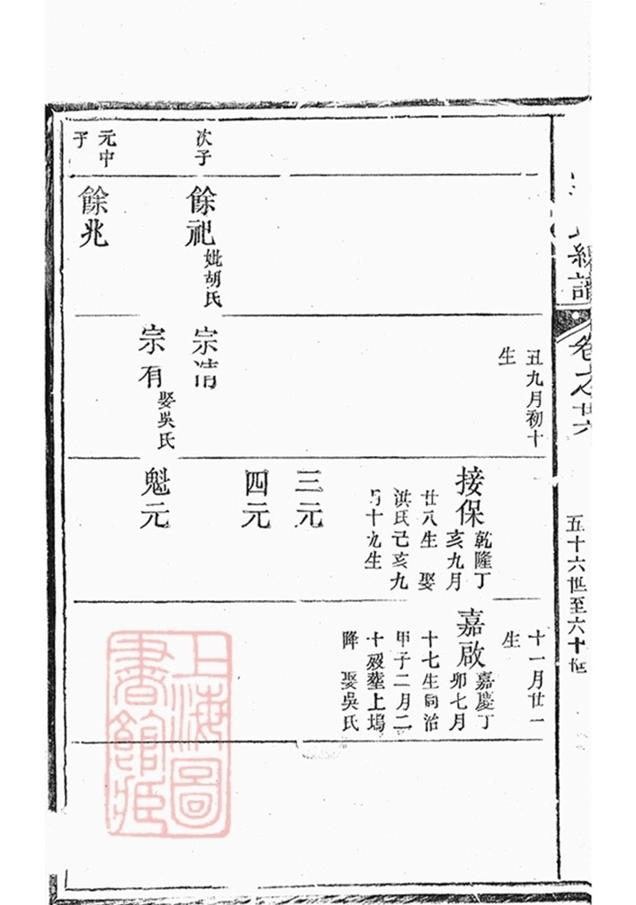 譜
卷之廿六
五十六世至六十世
丑九月初十
生
接保
乾隆丁
亥九月
廿八生 娶
洪氏己亥九
月十九生
三元
四元
魁元
十一月廿一
生
嘉啟
嘉慶丁
卯七月
十七生同治
甲子二月二
十歿塟上塢
降 娶吳氏
次子
餘祀
妣胡氏
宗清
宗有
娶吳氏
元中
子
餘兆
上海圖
書館藏